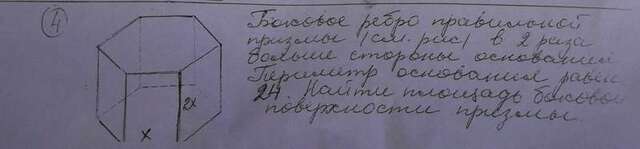 4
Боковое ребро правильной
призмы (см. рис) в 2 раза
больше стороны основания
Периметр основания равен
24. Найти площадь боковой
поверхности призмы.
2x
x